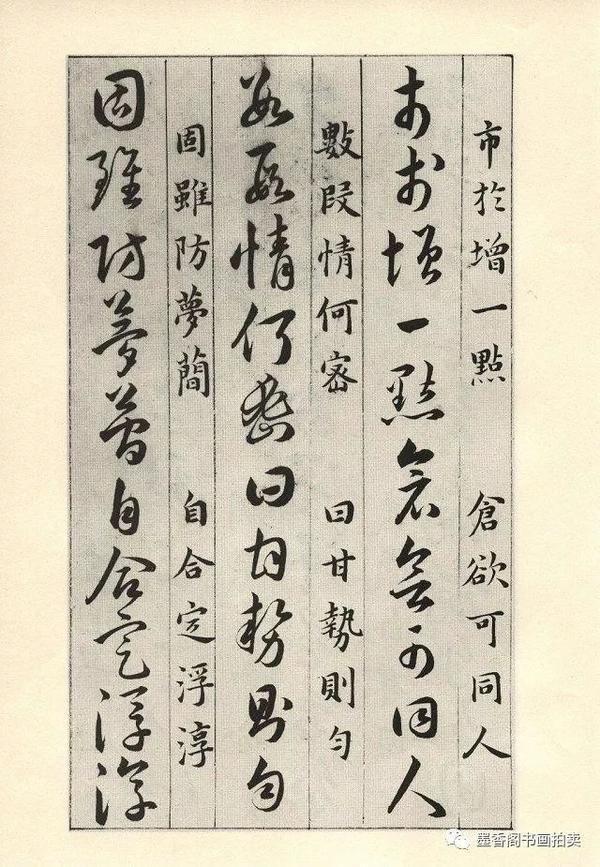 市於增一點　倉欲可同人
市於增一點倉欲可同人
數段情何密　曰甘勢則勻
數段情何密曰甘勢則勻
固雖防夢蕳　自合定浮淳
固雖防夢蕳自合定浮淳
墨香阁书画拍卖